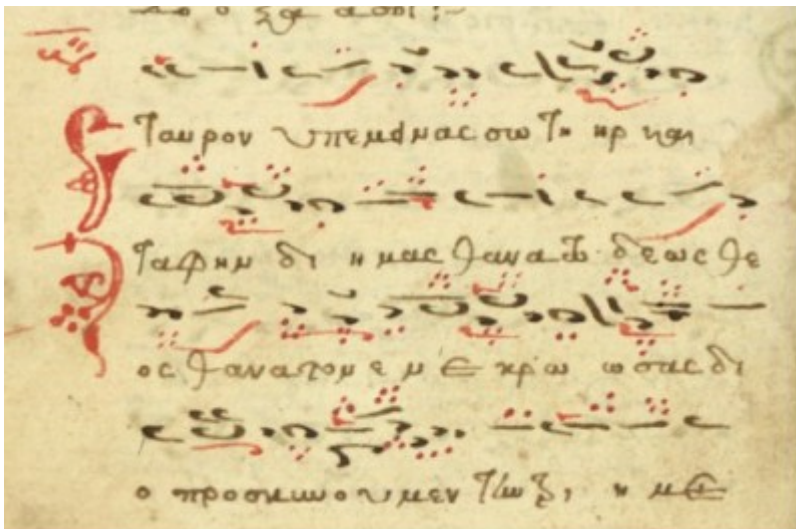 δο ο ξα α σοι :
Σταυρον υπεμεινας σω τη ηρ και
ταφην δι η μας θανατω δε ως θε
ος θανατον ε νε κρω ω σας δι
ο προσκυνο υμεν την τρι η με